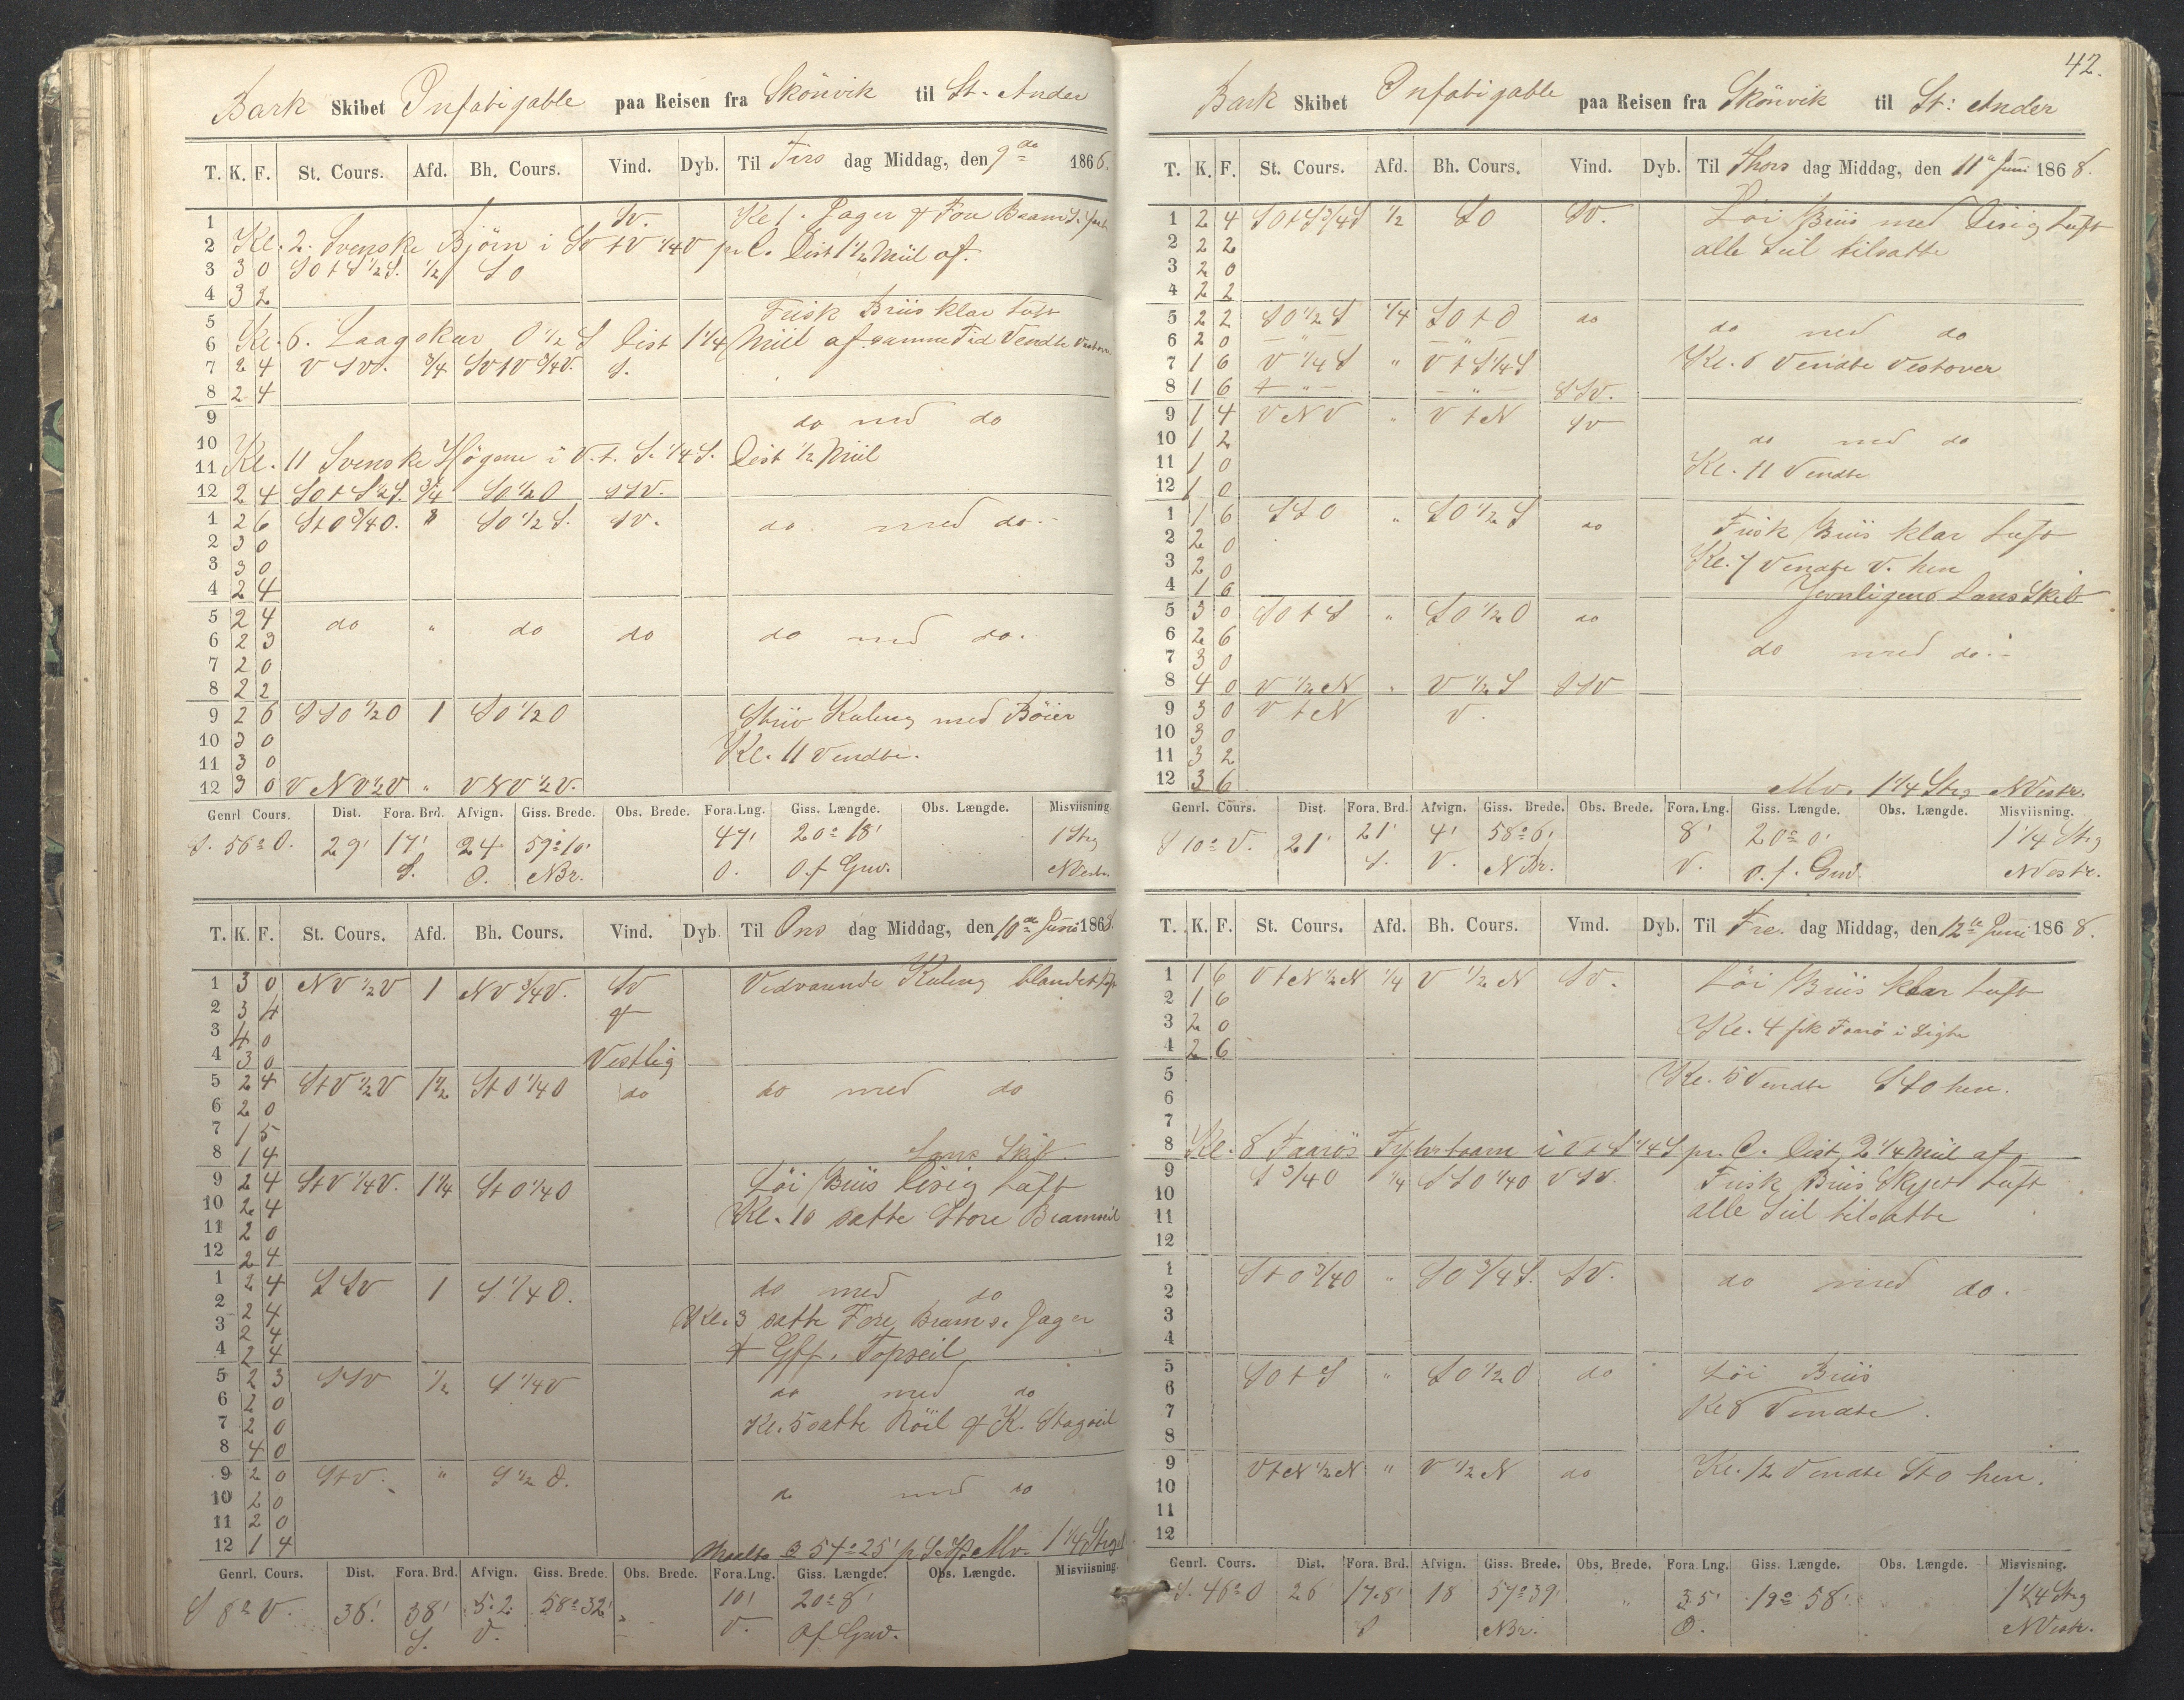 Bark Skibet Infatigable paa Reisen fra Skönvik til St. Ander
T. K. F. St. Cours. Afd. Bh. Cours. Vind. Dyb. Til Tirs dag Middag, den 9de 1868.
1 Sv. Kl 1. Jager & For Bram S. fast
2 Kl. 2. Svenske Bjørn i SV t V 1/4 V pr C. Dist 1 1/2 Miil af.
3 3 0 SO t S 1/2 S. 1/2 SO
4 3 2
5 Frisk Briis klar Luft
6 Kl. 6. Laagskar O 1/2 S Dist 1 1/4 Miil af samme Tid Vendte
7 2 4 V SV. 3/4 SV t V 3/4 V. S.
8 2 4
9 do med do
10
11 Kl. 11 Svenske Högene i V. t. S. 1/4 S. Dist 1/2 Miil
12 2 4 SO t S 1/2 S. 3/4 SO 1/2 O SSV.
1 2 6 S t O 3/4 O. " SO 1/2 S. SV. do med do.
2 3 0
3 3 0
4 2 4
5 2 4 do " do do do med do.
6 2 3
7 2 0
8 2 2
9 2 6 SSO 1/2 O 1 SO 1/2 O Stiiv Kuling med Böier
10 3 0 Kl. 11 Vendte.
11 3 0
12 3 0 V NV 1/2 V " V NV 1/2 V.
Genrl. Cours. Dist. Fora. Brd. Afvign. Giss. Brede. Obs. Brede. Fora. Lng. Giss. Længde. Obs. Længde. Misviisning
S. 56° O. 29' 17' 24 59° 10' 47' 20° 18' 1 Streg
S. O. NBr. O. O. f Grw. NVestr.
T. K. F. St. Cours. Afd. Bh. Cours. Vind. Dyb. Til Ons dag Middag, den 10de Juni 1868
1 3 0 NV 1/2 V 1 NV 3/4 V. SV Vedvarende Kuling blandet
2 3 4 &
3 4 0
4 3 0 Vestlig
5 2 4 S t V 1/2 V 1 1/2 S t O 1/4 O do do med do
6 2 0
7 1 5
8 1 4 Lans Skib.
9 2 4 S t V 1/4 V. 1 1/4 S t O 1/4 O Löi Briis Disig Luft
10 2 4 Kl. 10 satte Store Bramseil
11 2 0
12 2 4
1 2 4 SSV 1 S. 1/4 O. do med do
2 2 4 Kl. 3 satte Fore Brams. Jager
3 2 4
4 2 4 & Gff. Topseil
5 2 3 SSV 1/2 S 1/4 V do med do
6 2 0
7 2 0 Kl. 5 satte Röil & K. Stagseil
8 4 0
9 2 0 S t V. " S 1/2 O. do med do
10 2 0
11 2 0
12 1 4 Maalte 57° 25' Mv. 1 1/4 Streg
Genrl. Cours. Dist. Fora. Brd. Afvign. Giss. Brede. Obs. Brede. Fora. Lng. Giss. Længde. Obs. Længde. Misviisning.
S 8° V. 38' 38' 5.2. 58° 32' 10' 20° 8'
S. V. V. O f Grw.
42.
Bark Skibet Infatigable paa Reisen fra Skönvik til St: Ander
T. K. F. St. Cours. Afd. Bh. Cours. Vind. Dyb. Til Thors dag Middag, den 11te Juni 1868.
1 2 4 SO t S 3/4 S 1/2 SO SV. Löi Briis med Disig Luft
2 2 2 alle Seil tilsatte
3 2 0
4 2 2
5 2 2 SO 1/2 S 1/4 SO t O do do med do
6 2 0 — " — — " —
7 1 6 V 1/4 S " V t S 1/4 S Kl. 6 Vendte Vestover
8 1 6 — " — — " — SSV.
9 1 4 V NV " V t N SV
10 1 2 do med do
11 1 0 Kl. 11 Vendte
12 1 0
1 1 6 SSO " SO 1/2 S do Frisk Briis klar Luft
2 2 0
3 2 0 Kl. 7 Vendte V. hen
4 1 6 Jevnligens Lans Skib
5 3 0 SO t S " SO 1/2 O do
6 2 6 do med do.
7 3 0
8 4 0 V 1/2 N " V 1/2 S SSV
9 3 0 V t N V.
10 3 0
11 3 2
12 3 6 Mv. 1 1/4 Streg NVestr.
Genrl. Cours. Dist. Fora. Brd. Afvign. Giss. Brede. Obs. Brede. Fora. Lng. Giss. Længde. Obs. Længde. Misviisning.
S 10° V. 21' 21' 4' 58° 6' 8' 20° 0' 1 1/4 Streg
S. V. NBr. V. O. f. Grw. NVestr.
T. K. F. St. Cours. Afd. Bh. Cours. Vind. Dyb. Til Fre. dag Middag, den 12te Juni 1868.
1 1 6 V t N 1/2 N 1/4 V 1/2 N SV. Löi Briis klar Luft
2 1 6
3 2 0 Kl. 4 fik Faarö i Sigte
4 2 6
5 Kl. 5 Vendte SSO hen.
6
7
8 Kl. 8 Faarös Fyhrtaarn i V t S 1/4 S pr. C. Dist 2 1/4 Miil af
9 S 3/4 O 1/4 SSO 1/4 O V SV. Frisk Briis Skyet Luft
10
11 alle Seil tilsatte
12
1 S t O 3/4 O " SO 3/4 S. SV. do med do.
2
3
4
5 SO t S " SO 1/2 O do Löi Briis
6
7 Kl 8 Vendte.
8
9 V t N 1/2 N " V 1/2 N do Kl. 12 Vendte S t O hen.
10
11
12
Genrl. Cours. Dist. Fora. Brd. Afvign. Giss. Brede. Obs. Brede. Fora. Lng. Giss. Længde. Obs. Længde. Misvisning.
S. 46° O 26' 17.8' 18 57° 39' " 35' 19° 58' 1 1/4 Streg
S NBr. O. NVestr.